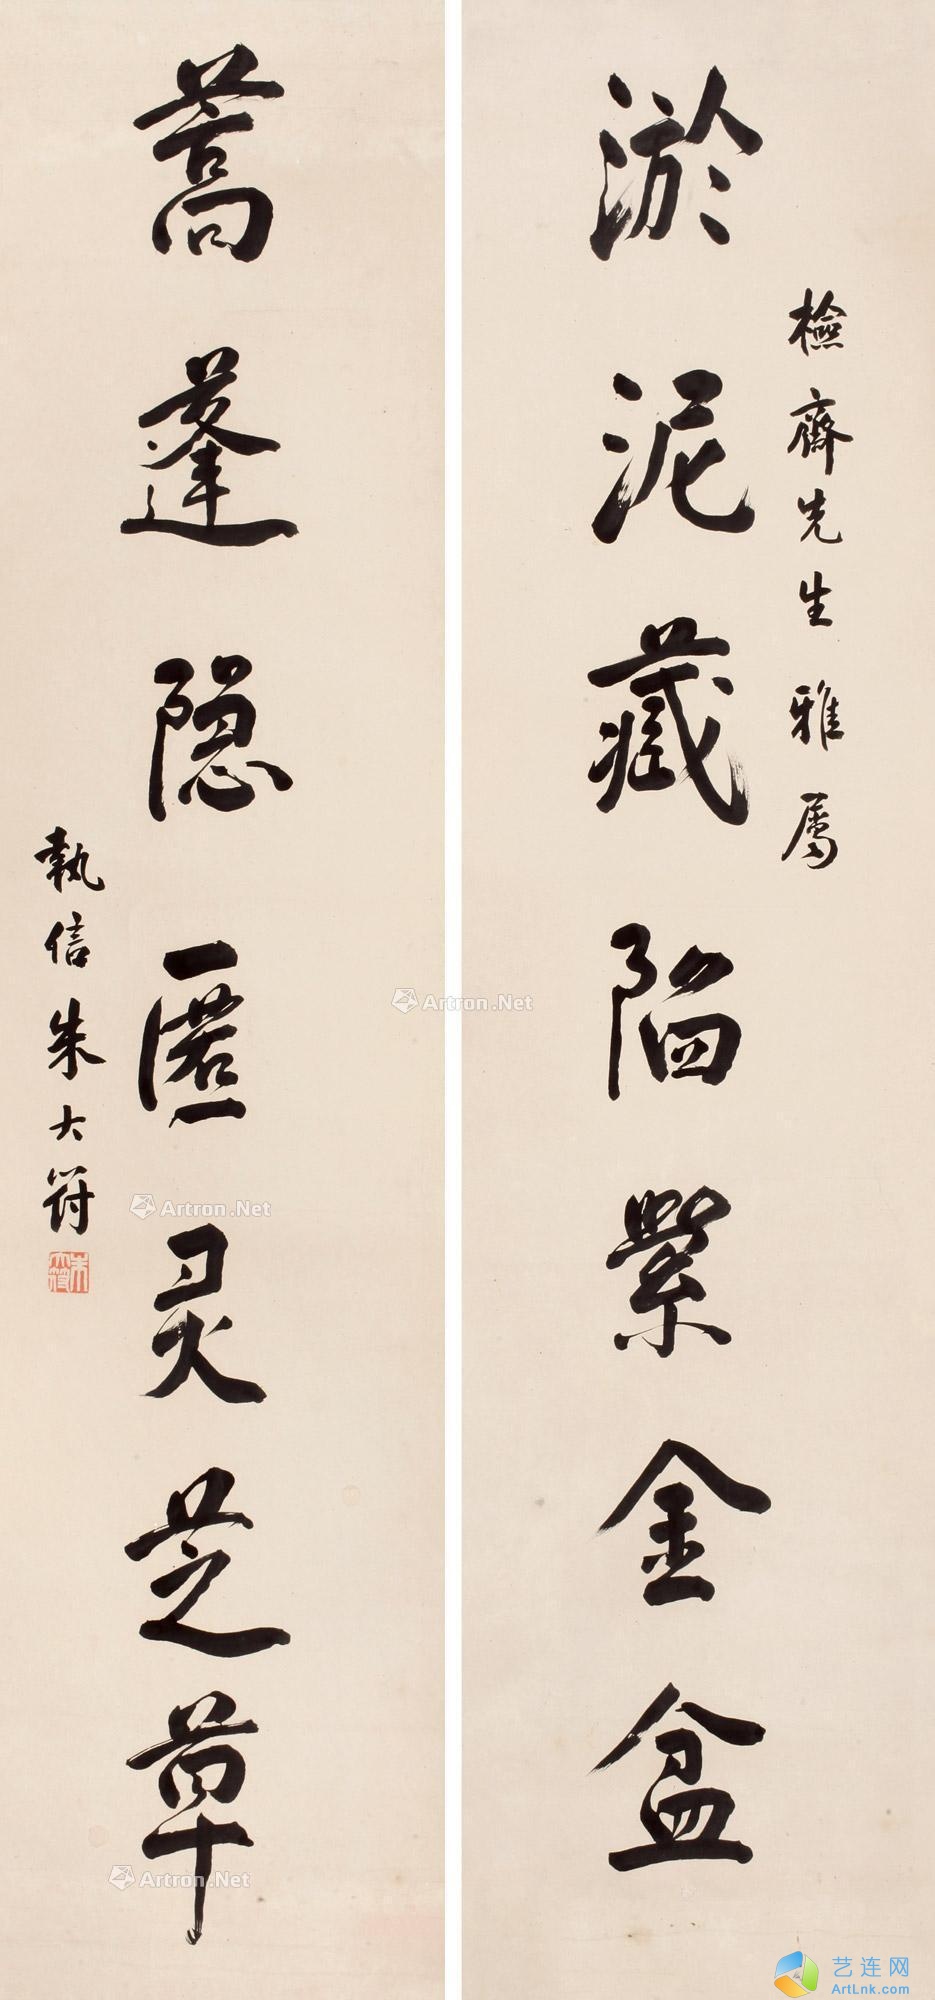 檢齋先生雅屬
淤泥藏陷紫金盆
蒿蓬隐匿灵芝草
執信朱大符
朱大符
Artron.Net
Artron.Net
Artron.Net
艺连网
ArtLnk.com